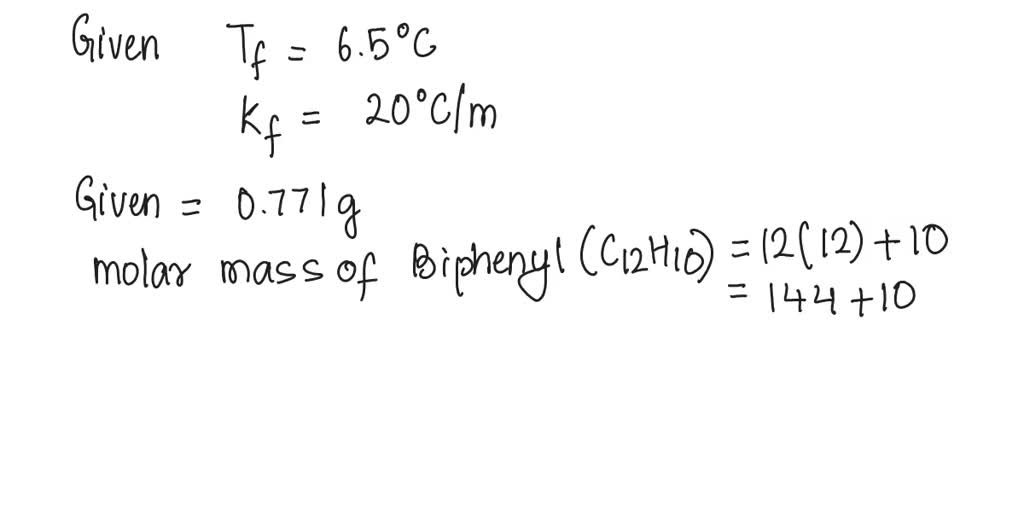 Given Tf = 6.5°C
Kf = 20°C/m
Given = 0.771g
molar mass of Biphenyl (C12H10) = 12(12)+10
= 144+10